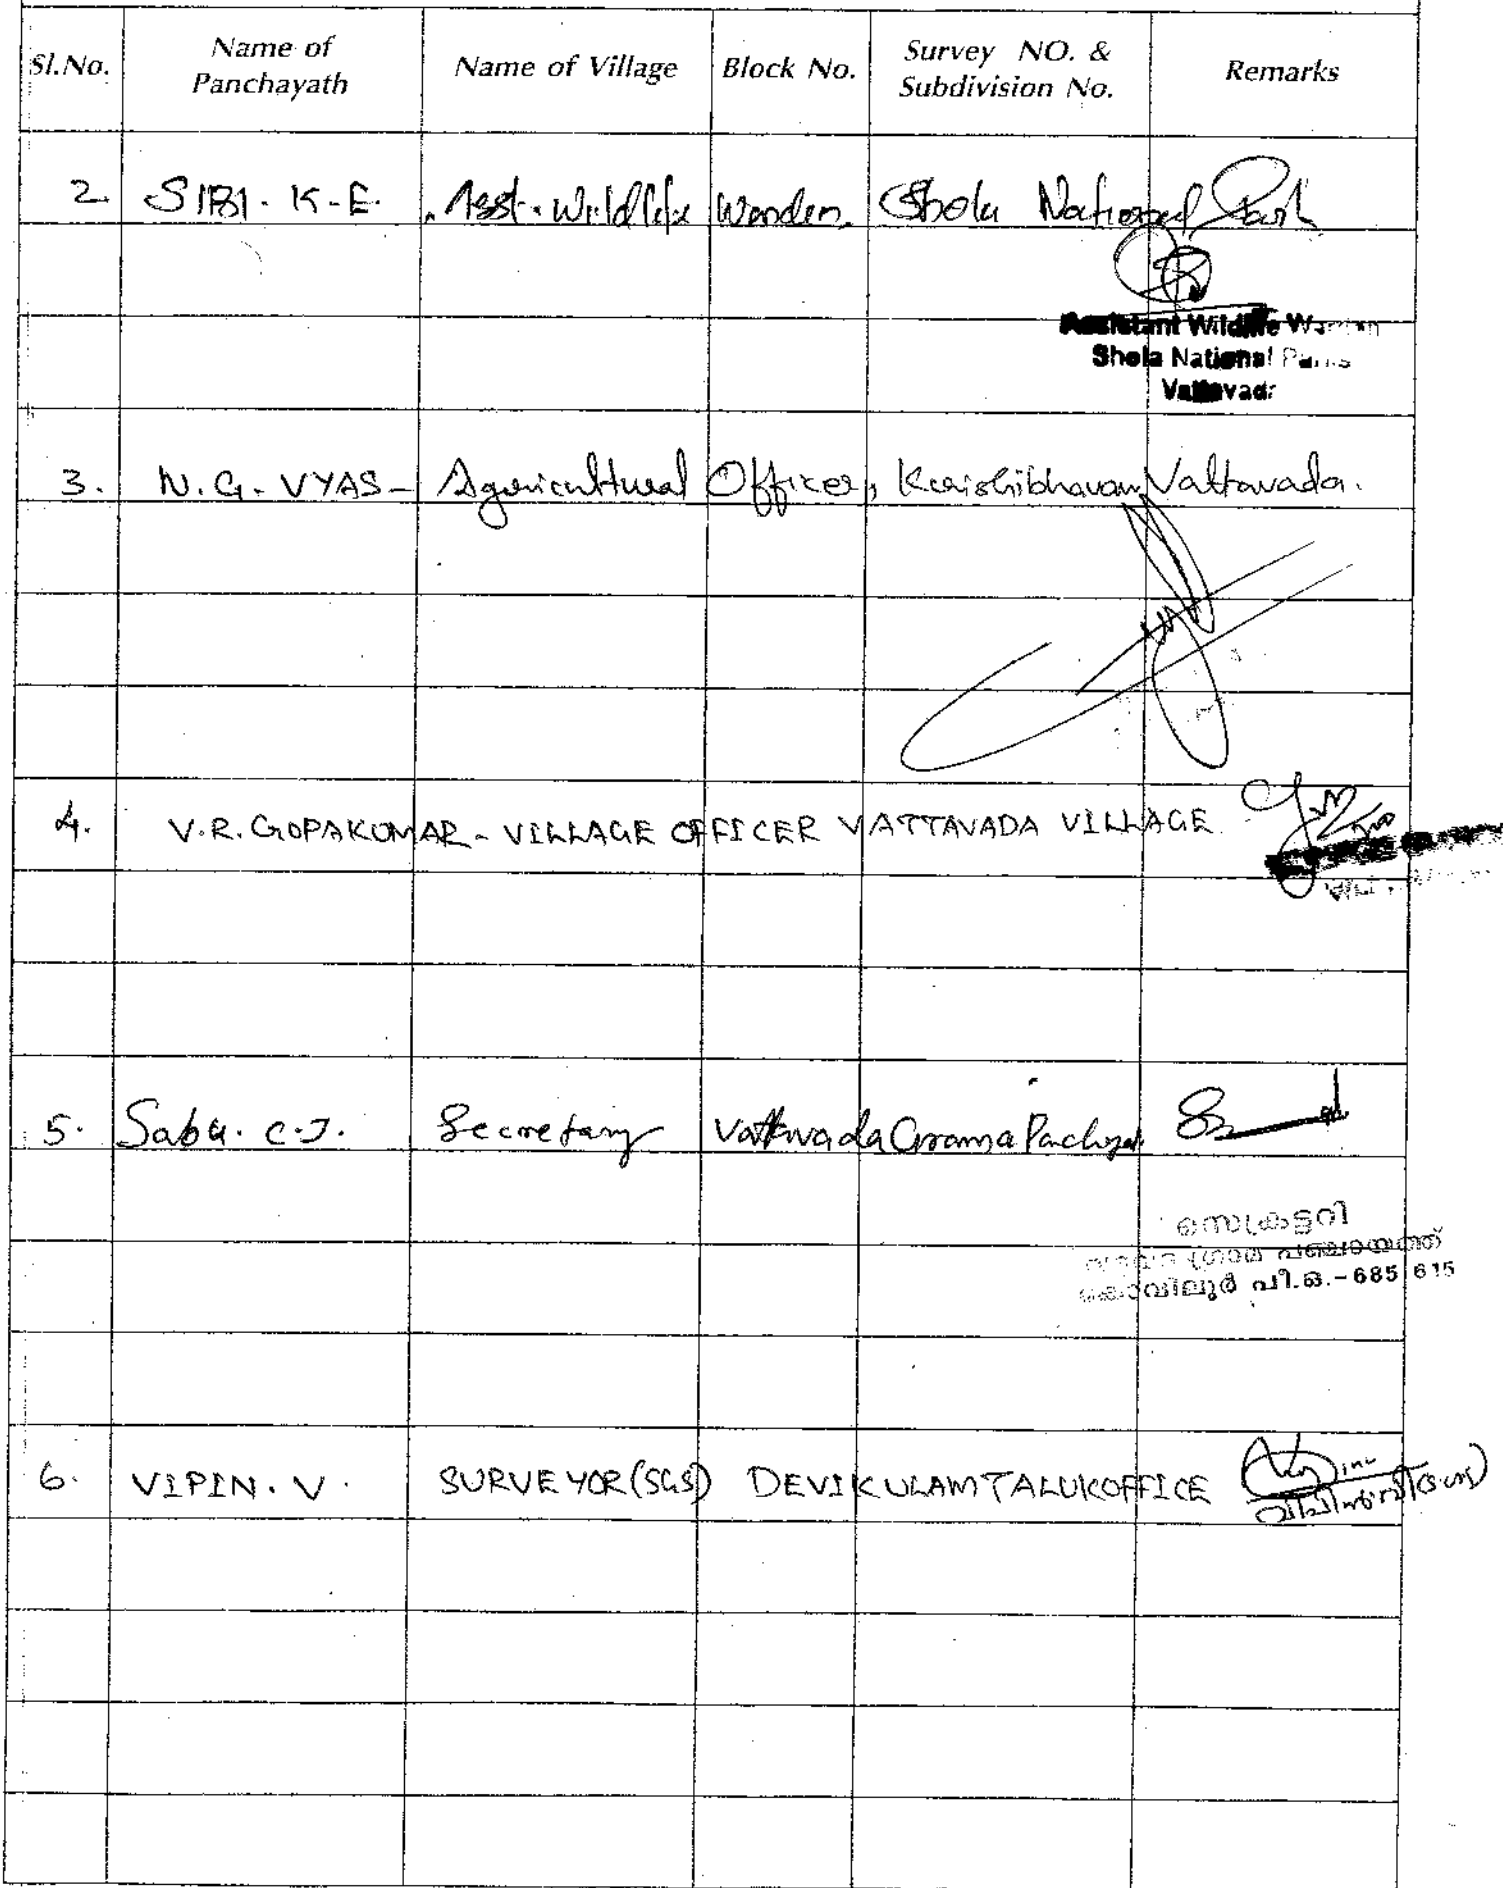 Sl.No. Name of Panchayath Name of Village Block No. Survey NO. & Subdivision No. Remarks
2. SIBI. K-E. Asst. Wildlife Warden. Shola National Park
Assistant Wildlife Warden
Shola National Parks
Vattavada
3. N.G. VYAS - Agricultural Officer, Krishibhavan Vattavada.
4. V.R. GOPAKUMAR - VILLAGE OFFICER VATTAVADA VILLAGE
5. Sabu. C.J. Secretary Vattavada Grama Panchayat
സെക്രട്ടറി
ഗ്രാമ പഞ്ചായത്ത്
കോവിലൂർ പി.ഒ.-685 615
6. VIPIN. V. SURVEYOR (SGS) DEVIKULAM TALUK OFFICE